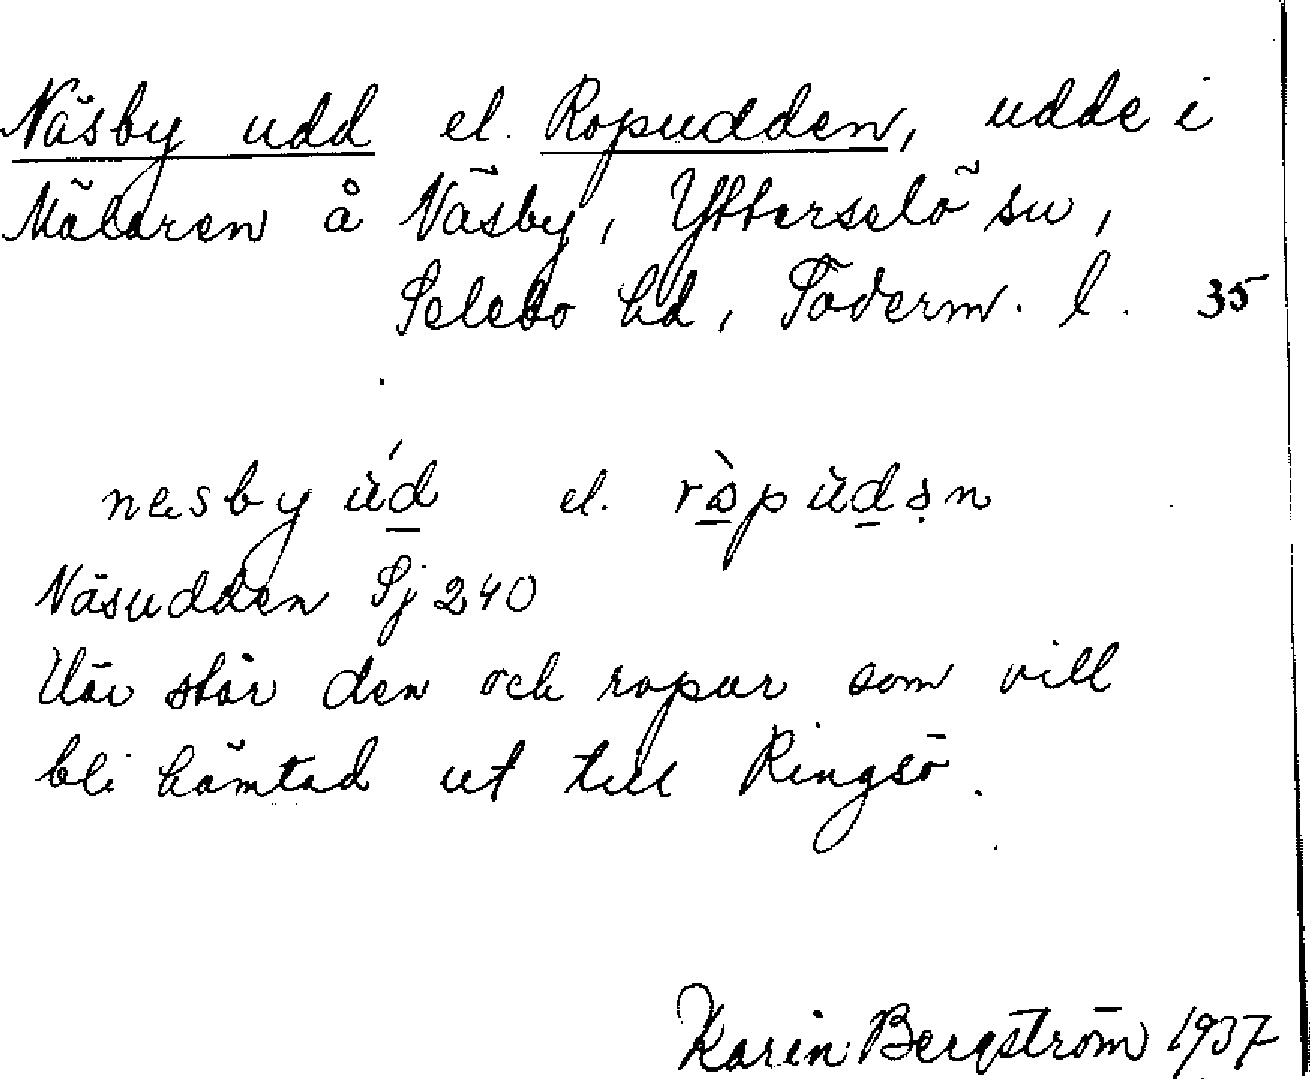 Näsby udd el. Ropudden, udde i
Mälaren å Näsby, Ytterselö sn,
Selebo hd, Söderm. l. 35
näsby ùd el. ròpùdən
Näsudden Sj 240
Där står den och ropar som vill
bli hämtad ut till Ringsö.
Karin Bergström 1937